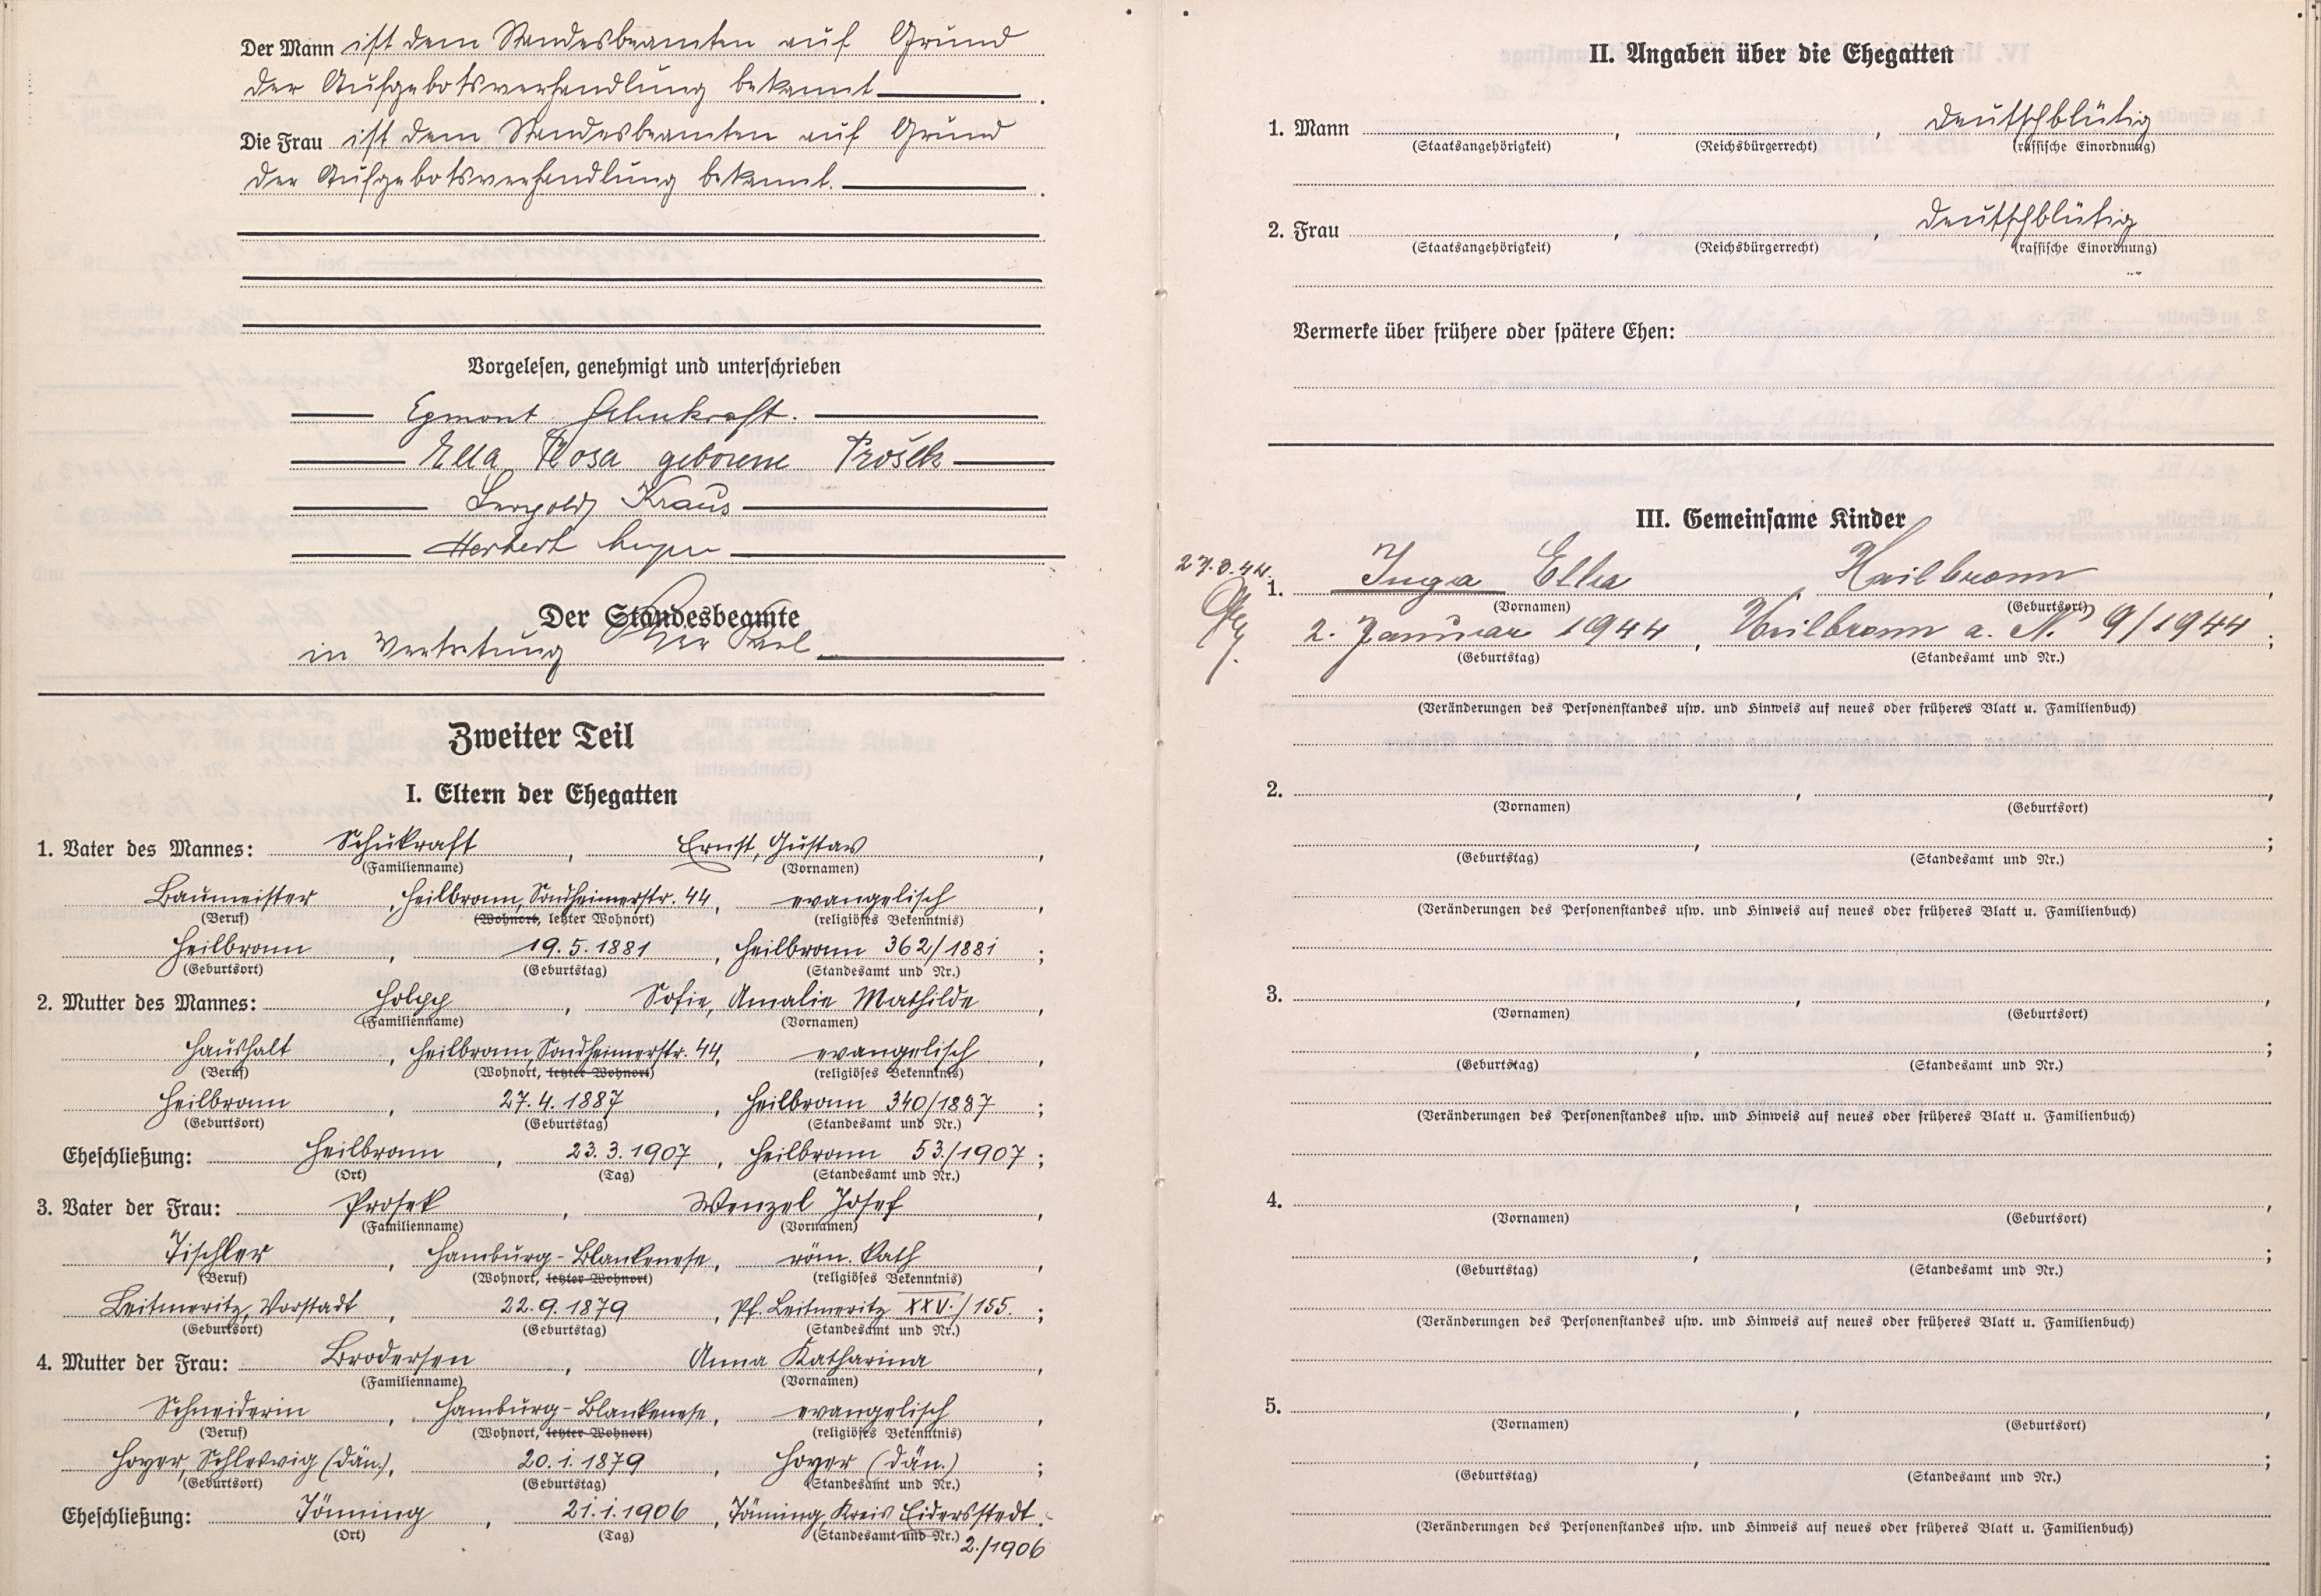 Der Mann ist dem Standesbeamten auf Grund
der Aufgebotsverhandlung bekannt.
Die Frau ist dem Standesbeamten auf Grund
der Aufgebotsverhandlung bekannt.
Vorgelesen, genehmigt und unterschrieben
Egmont Schukraft.
Ella Rosa geborene Prošek
Leopold Kraus
Herbert
Der Standesbeamte
in Vertretung
Zweiter Teil
I. Eltern der Ehegatten
1. Vater des Mannes: Schukraft, Ernst, Gustav,
(Familienname) (Vornamen)
Baumeister, Heilbronn, Sontheimerstr. 44, evangelisch,
(Beruf) (Wohnort, letzter Wohnort) (religiöses Bekenntnis)
Heilbronn, 19.5.1881, Heilbronn 362/1881;
(Geburtsort) (Geburtstag) (Standesamt und Nr.)
2. Mutter des Mannes: Holpp, Sofie, Amalie Mathilde,
(Familienname) (Vornamen)
Haushalt, Heilbronn, Sontheimerstr. 44, evangelisch,
(Beruf) (Wohnort, letzter Wohnort) (religiöses Bekenntnis)
Heilbronn, 27.4.1887, Heilbronn 340/1887;
(Geburtsort) (Geburtstag) (Standesamt und Nr.)
Eheschließung: Heilbronn, 23.3.1907, Heilbronn 53./1907;
(Ort) (Tag) (Standesamt und Nr.)
3. Vater der Frau: Prosek, Wenzel Josef,
(Familienname) (Vornamen)
Tischler, Hamburg-Blankenese, röm. kath,
(Beruf) (Wohnort, letzter Wohnort) (religiöses Bekenntnis)
Leitmeritz, Vorstadt, 22.9.1879, Pf. Leitmeritz XXV./155.;
(Geburtsort) (Geburtstag) (Standesamt und Nr.)
4. Mutter der Frau: Brodersen, Anna Katharina,
(Familienname) (Vornamen)
Schneiderin, Hamburg-Blankenese, evangelisch,
(Beruf) (Wohnort, letzter Wohnort) (religiöses Bekenntnis)
Hoyer, Schleswig (dän.), 20.1.1879, Hoyer (dän.);
(Geburtsort) (Geburtstag) (Standesamt und Nr.)
Eheschließung: Tönning, 21.1.1906, Tönning, Kreis Eidersstedt.
(Ort) (Tag) (Standesamt und Nr.) 2./1906
II. Angaben über die Ehegatten
1. Mann , , deutschblütig
(Staatsangehörigkeit) (Reichsbürgerrecht) (rassische Einordnung)
2. Frau , , deutschblütig
(Staatsangehörigkeit) (Reichsbürgerrecht) (rassische Einordnung)
Vermerke über frühere oder spätere Ehen:
III. Gemeinsame Kinder
27.3.44.
1. Inga Ella, Heilbronn,
(Vornamen) (Geburtsort)
2. Januar 1944, Heilbronn a. N. 9/1944;
(Geburtstag) (Standesamt und Nr.)
(Veränderungen des Personenstandes usw. und Hinweis auf neues oder früheres Blatt u. Familienbuch)
2. , ,
(Vornamen) (Geburtsort)
, ;
(Geburtstag) (Standesamt und Nr.)
(Veränderungen des Personenstandes usw. und Hinweis auf neues oder früheres Blatt u. Familienbuch)
3. , ,
(Vornamen) (Geburtsort)
, ;
(Geburtstag) (Standesamt und Nr.)
(Veränderungen des Personenstandes usw. und Hinweis auf neues oder früheres Blatt u. Familienbuch)
4. , ,
(Vornamen) (Geburtsort)
, ;
(Geburtstag) (Standesamt und Nr.)
(Veränderungen des Personenstandes usw. und Hinweis auf neues oder früheres Blatt u. Familienbuch)
5. , ,
(Vornamen) (Geburtsort)
, ;
(Geburtstag) (Standesamt und Nr.)
(Veränderungen des Personenstandes usw. und Hinweis auf neues oder früheres Blatt u. Familienbuch)